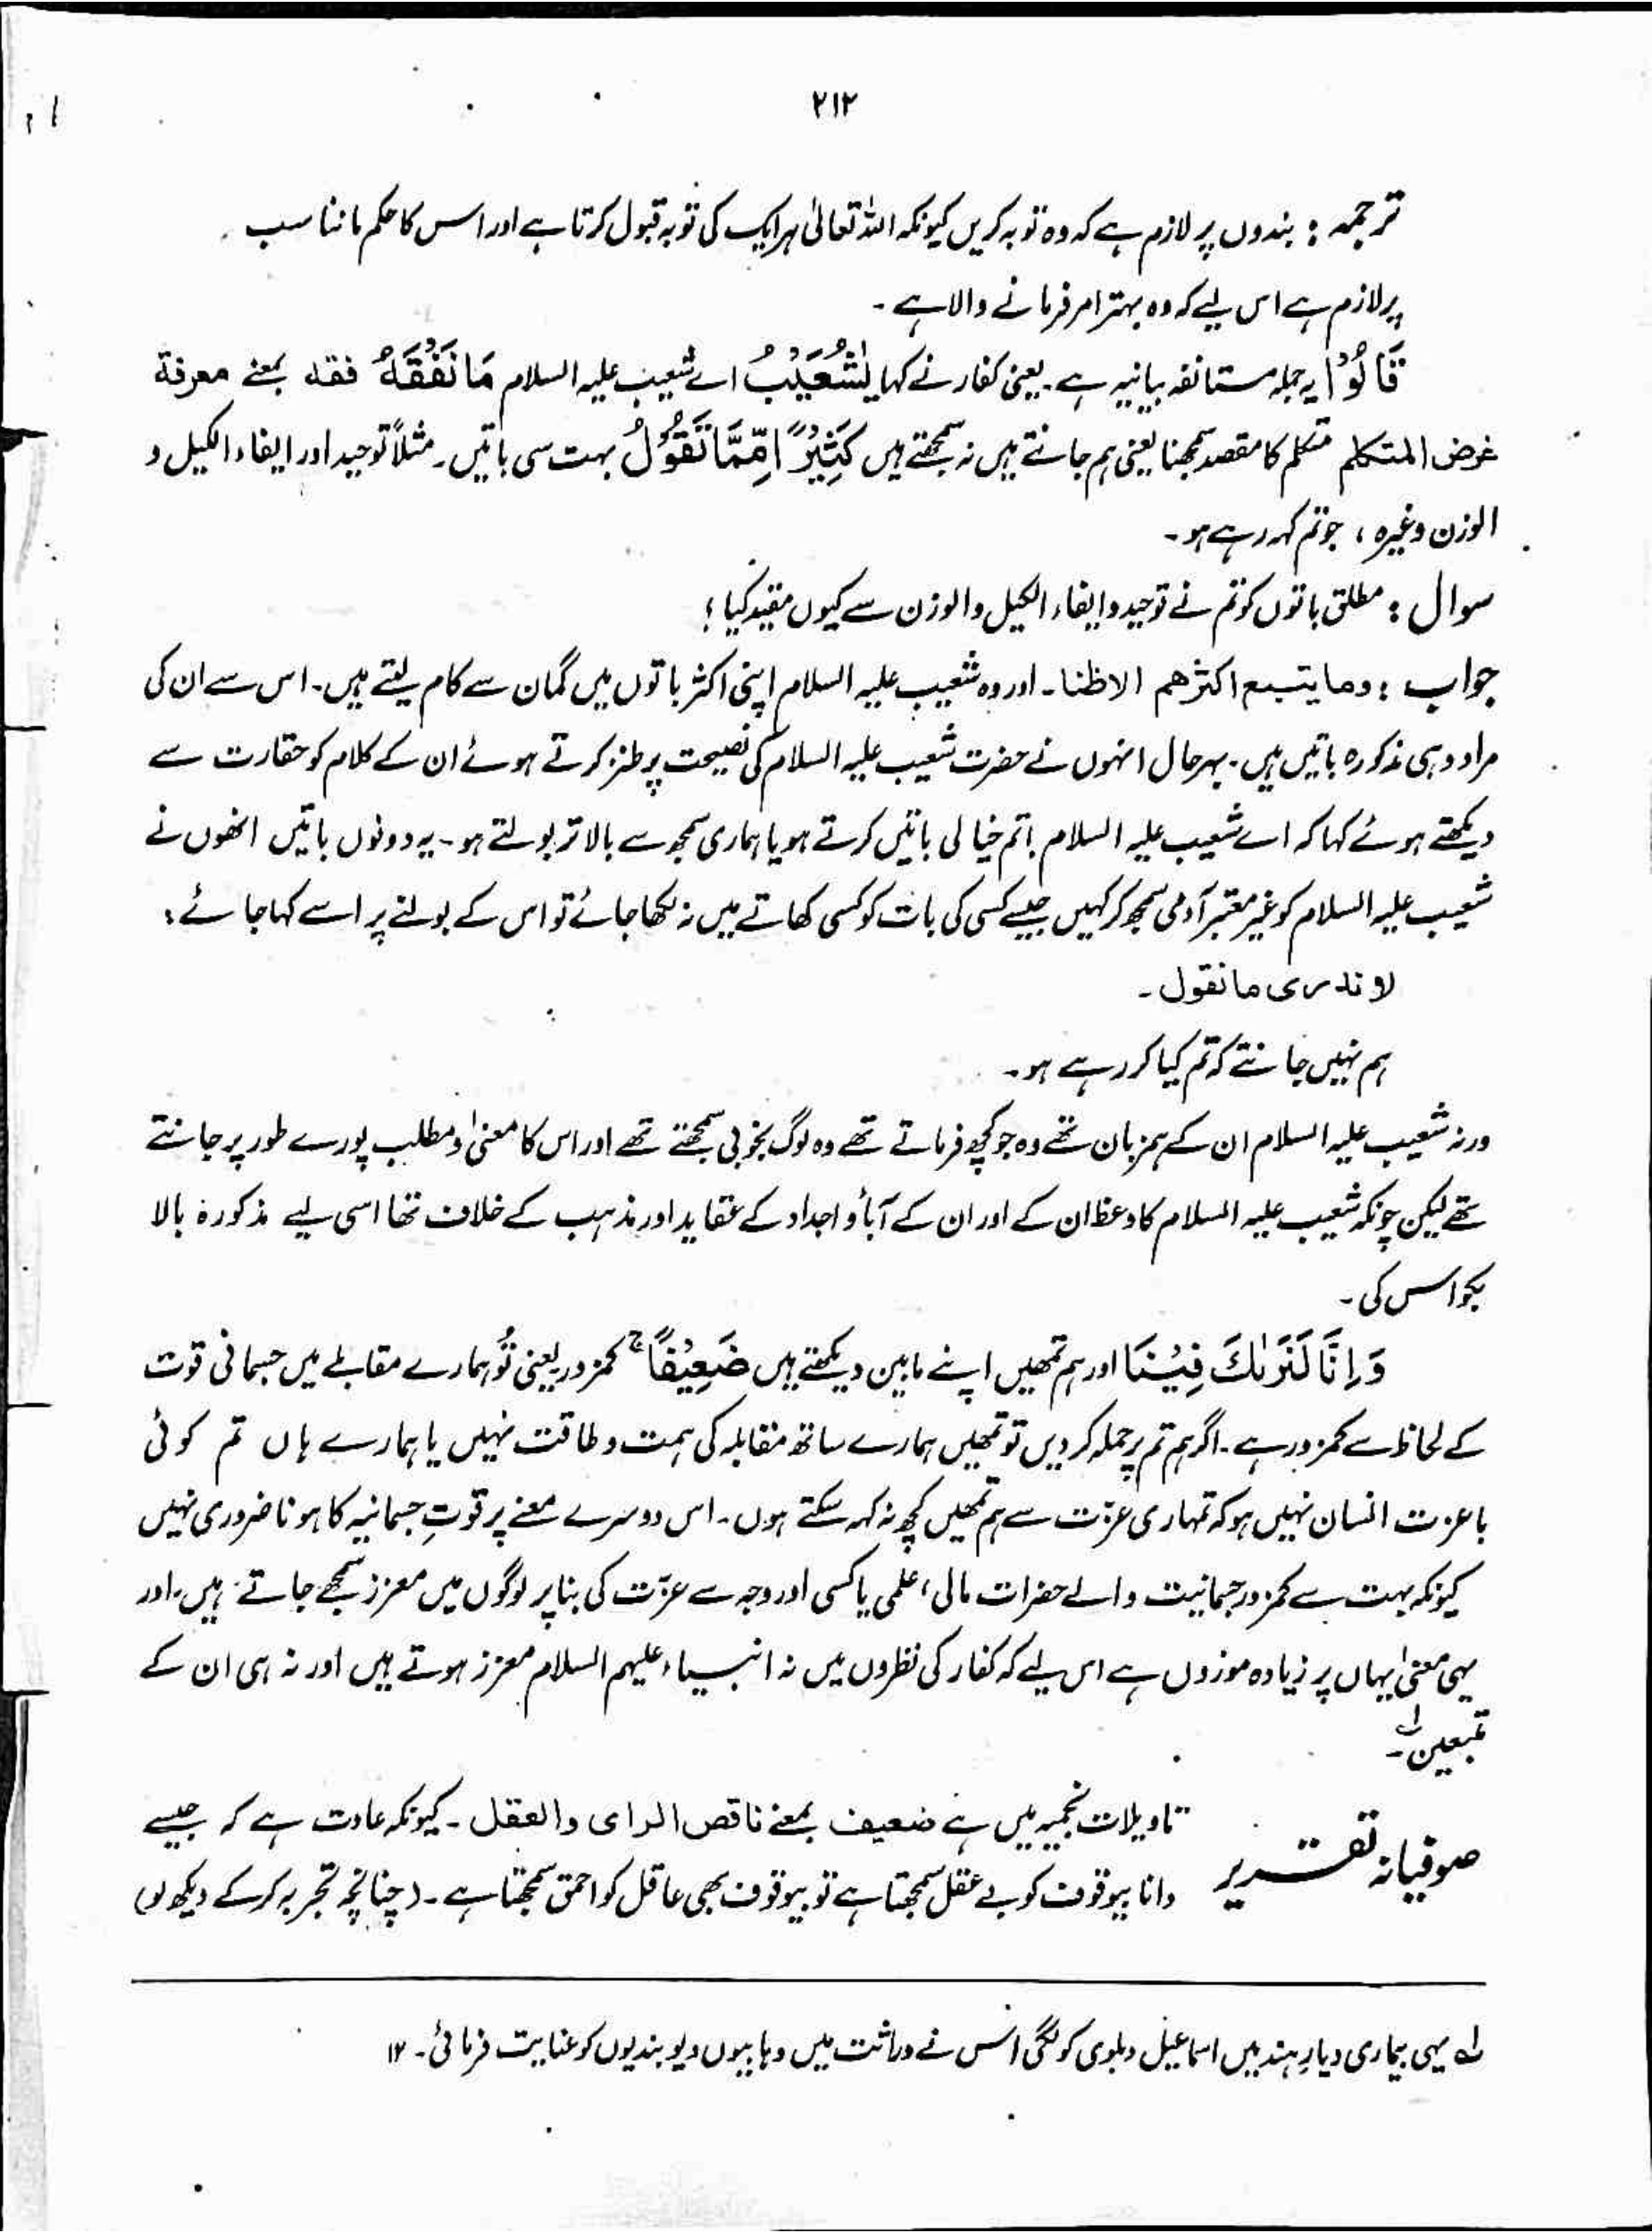 ۲۱۲
ترجمہ : بندوں پر لازم ہے کہ وہ توبہ کریں کیونکہ اللہ تعالیٰ ہر ایک کی توبہ قبول کرتا ہے اور اس کا حکم ماننا سب
پر لازم ہے اس لیے کہ وہ بہتر امر فرمانے والا ہے ۔
قَالُوْا یہ جملہ مستانفہ بیانیہ ہے ۔ یعنی کفار نے کہا یٰشُعَیْبُ اے شعیب علیہ السلام مَا نَفْقَهُ فقه بمعنے معرفة
غرض المتكلم متکلم کا مقصد سمجھنا یعنی ہم جانتے ہیں نہ سمجھتے ہیں كَثِیْرًا مِّمَّا تَقُوْلُ بہت سی باتیں ۔ مثلاً توحید اور ایفاء الکیل و
الوزن وغیرہ ، جو تم کہہ رہے ہو ۔
سوال : مطلق باتوں کو تم نے توحید و ایفاء الکیل والوزن سے کیوں مقید کیا ؟
جواب : وما يتبع اكثرهم الاظنا ۔ اور وہ شعیب علیہ السلام اپنی اکثر باتوں میں گمان سے کام لیتے ہیں ۔ اس سے ان کی
مراد وہی مذکورہ باتیں ہیں ۔ بہرحال انہوں نے حضرت شعیب علیہ السلام کی نصیحت پر طنز کرتے ہوئے ان کے کلام کو حقارت سے
دیکھتے ہوئے کہا کہ اے شعیب علیہ السلام ! تم خیالی باتیں کرتے ہو یا ہماری سمجھ سے بالاتر بولتے ہو ۔ یہ دونوں باتیں انھوں نے
شعیب علیہ السلام کو غیر معتبر آدمی سمجھ کر کہیں جیسے کسی کی بات کو کسی کھاتے میں نہ لکھا جائے تو اس کے بولنے پر اسے کہا جائے :
لا ندری ما نقول ۔
ہم نہیں جانتے کہ تم کیا کر رہے ہو ۔
ورنہ شعیب علیہ السلام ان کے ہمزبان تھے وہ جو کچھ فرماتے تھے وہ لوگ بخوبی سمجھتے تھے اور اس کا معنیٰ و مطلب پورے طور پر جانتے
تھے لیکن چونکہ شعیب علیہ السلام کا وعظ ان کے اور ان کے آبأ و اجداد کے عقاید اور مذہب کے خلاف تھا اسی لیے مذکورہ بالا
بکواس کی ۔
وَ اِنَّا لَنَرٰىكَ فِیْنَا اور ہم تمھیں اپنے مابین دیکھتے ہیں ضَعِیْفًا ج کمزور یعنی تُو ہمارے مقابلے میں جسمانی قوت
کے لحاظ سے کمزور ہے ۔ اگر ہم تم پر حملہ کر دیں تو تمھیں ہمارے ساتھ مقابلہ کی ہمت و طاقت نہیں یا ہمارے ہاں تم کوئی
باعزت انسان نہیں ہو کہ تمہاری عزّت سے ہم تمھیں کچھ نہ کہہ سکتے ہوں ۔ اس دوسرے معنے پر قوتِ جسمانیہ کا ہونا ضروری نہیں
کیونکہ بہت سے کمزور جسمانیت والے حضرات مالی ، علمی یا کسی اور وجہ سے عزّت کی بنا پر لوگوں میں معزز سمجھے جاتے ہیں ، اور
یہی معنیٰ یہاں پر زیادہ موزوں ہے اس لیے کہ کفار کی نظروں میں نہ انبیاء علیہم السلام معزز ہوتے ہیں اور نہ ہی ان کے
تبعین لہ ۔
صوفیانہ تقریر
تاویلات نجمیہ میں ہے ضعیف بمعنے ناقص الرای والعقل ۔ کیونکہ عادت ہے کہ جیسے
دانا بیوقوف کو بے عقل سمجھتا ہے تو بیوقوف بھی عاقل کو احمق سمجھتا ہے ۔ (چنانچہ تجربہ کر کے دیکھ لو)
لہ یہی بیماری دیارِ ہند میں اسماعیل دہلوی کو لگی اس نے وراثت میں وہابیوں دیوبندیوں کو عنایت فرمائی ۔ ۱۲